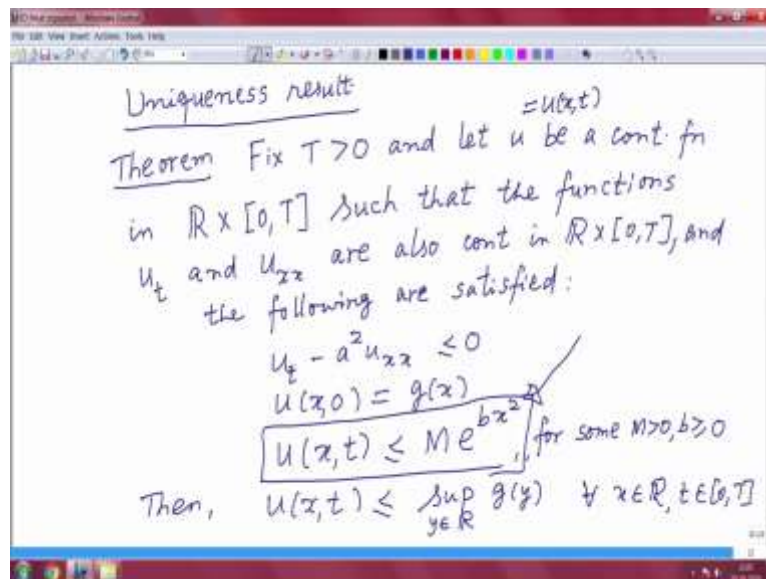 Uniqueness result
= u(x,t)
Theorem Fix T > 0 and let u be a cont. fn
in ℝ × [0,T] such that the functions
u_t and u_xx are also cont in ℝ × [0,T], and
the following are satisfied:
u_t - a² u_xx ≤ 0
u(x,0) = g(x)
u(x,t) ≤ M e^{bx²}, for some M>0, b≥0
Then, u(x,t) ≤ sup_{y∈ℝ} g(y) ∀ x∈ℝ, t∈[0,T]